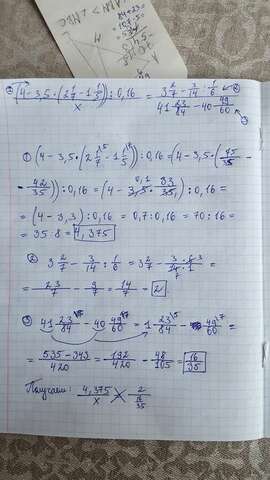 84+23=
107·5=
=535
(4-3,5·(2 1/7-1 1/5)):0,16 / x = 3 2/7 - 3/14 : 1/6 / 41 23/84 - 40 49/60
① (4-3,5·(2 1/7 - 1 1/5)):0,16 = (4-3,5·(75/35 -
- 42/35)):0,16 = (4 - 3,5 · 33/35):0,16 =
= (4-3,3):0,16 = 0,7:0,16 = 70:16 =
= 35:8 = 4,375
② 3 2/7 - 3/14 : 1/6 = 3 2/7 - 3·6/14·1 =
= 23/7 - 9/7 = 14/7 = 2
③ 41 23/84 - 40 49/60 = 1 23/84 - 49/60 =
= 535-343/420 = 192/420 = 48/105 = 16/35
Получаем: 4,375/x = 2/16/35